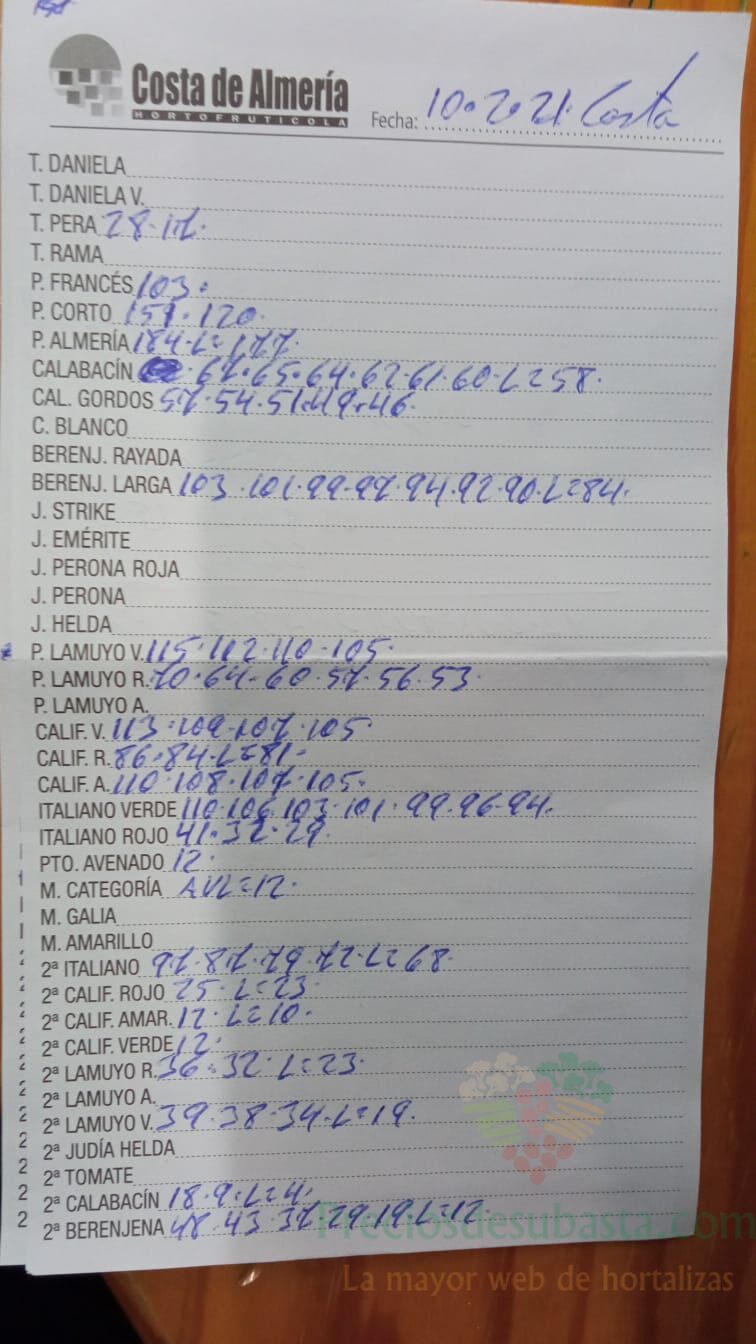 Costa de Almería
HORTOFRUTICOLA
Fecha: 10·2·21· Costa
T. DANIELA
T. DANIELA V.
T. PERA 28·17·
T. RAMA
P. FRANCÉS 103·
P. CORTO 151·120·
P. ALMERÍA 184·L=177·
CALABACÍN ·67·65·64·62·61·60·L=58·
CAL. GORDOS 57·54·51·49·46·
C. BLANCO
BERENJ. RAYADA
BERENJ. LARGA 103·101·99·97·94·92·90·L=84·
J. STRIKE
J. EMÉRITE
J. PERONA ROJA
J. PERONA
J. HELDA
P. LAMUYO V. 115·112·110·105·
P. LAMUYO R. 70·64·60·57·56·53·
P. LAMUYO A.
CALIF. V. 113·109·107·105
CALIF. R. 86·84·L=81·
CALIF. A. 110·108·107·105·
ITALIANO VERDE 110·106·103·101·99·96·94·
ITALIANO ROJO 41·32·29·
PTO. AVENADO 12·
M. CATEGORÍA =12·
M. GALIA
M. AMARILLO
2ª ITALIANO 97·87·79·72·L=68·
2ª CALIF. ROJO 25·L=23·
2ª CALIF. AMAR. 12·L=10·
2ª CALIF. VERDE 12·
2ª LAMUYO R. 36·32·L=23·
2ª LAMUYO A.
2ª LAMUYO V. 39·38·34·L=19·
2ª JUDÍA HELDA
2ª TOMATE
2ª CALABACÍN 18·9·L=4·
2ª BERENJENA 48·43·37·29·19·L=12
Preciosdesubasta.com
La mayor web de hortalizas